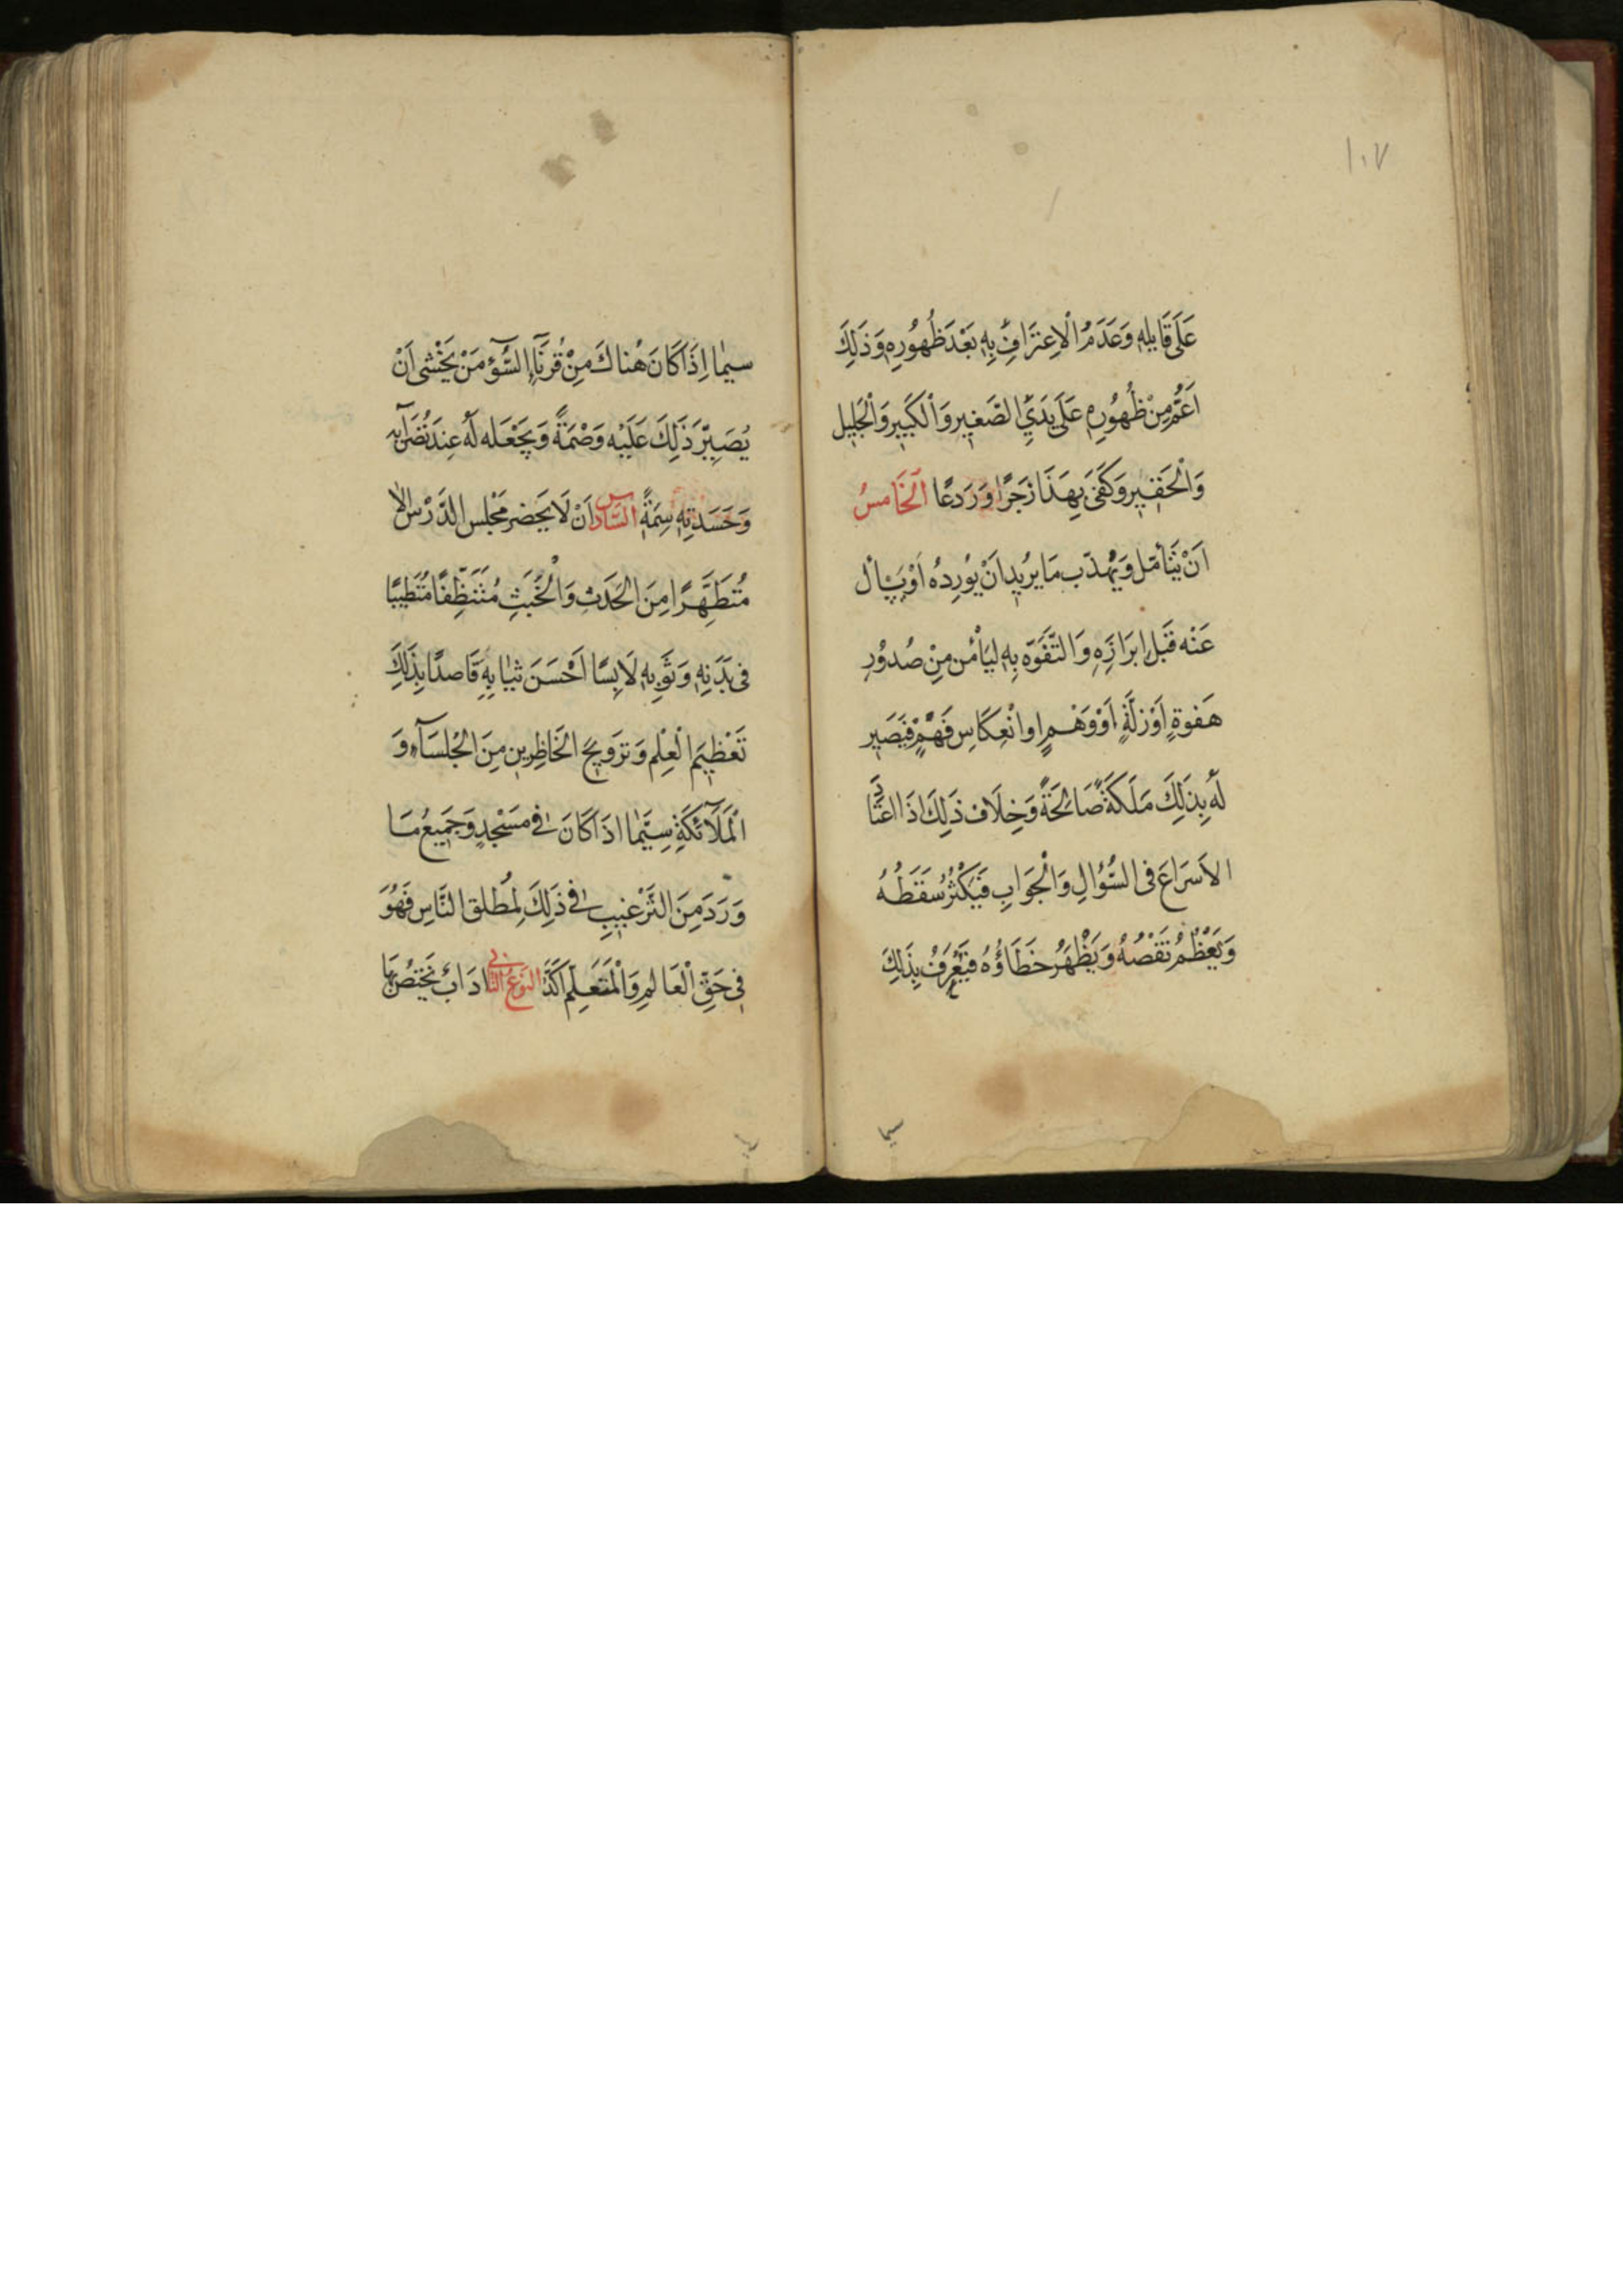 ١٠٧
عَلَى قَايِلِهِ وَعَدَمُ الْاِعتِرَافِ بِهِ بَعْدَ ظُهُورِهِ وَذَلِكَ
اَعَمُّ مِنْ ظُهُورِهِ عَلَى يَدَيِ الصَّغيِرِ وَالكَبِيرِ وَالْجَلِيلِ
وَالْحَقِيرِ وَكَفَى بِهَذَا زَجَرًا وَرَدعًا اَلخَامسُ
اَنْ يَتَأمّل وَيُهذّب مَا يرُيد اَنْ يوُرِدُه اَوْ يَسْأل
عَنْه قَبْلَ اِبرَازِهِ وَ التَّفَوّه بِهِ لِيَأمُن مِنْ صُدوُرِ
هَفوةٍ اَوْ زلّةٍ اَوْ وَهْمٍ اوانْعِكَاسِ فَهْمٍ فَيَصَير
لَهُ بِذلِكَ مَلَكَةً صَالِحَةً وَخِلَاف ذلِكَ اذَا اعتَادَ
الاَسرَاعَ فى السُّؤالِ وَالْجَوَابِ فَيَكْثُرُ سُقَطُهُ
وَيَعْظُمُ نَقْصُهُ وَيَظْهَرُ خَطَاؤُهُ فَيُعْرَفُ بِذَلِكَ
سيما
سيمٰا اِذَا كَانَ هُناكَ مِنْ قُرنَآءِ السُّوٓءِ مَنْ يَخْشٰى اَنْ
يُصَيِّرَ ذَلِكَ عَلَيْه وَصْمَةً وَيَجْعَله لَهُ عِندَ نُضَرآئِه
وَحَسَدَتِهِ سِمَةً السَّادس اَنْ لَا يَحَضر مَجْلِس الدَّرْسِ اِلّا
مُتَطَهِّرًا مِنَ الحَدَثِ وَالْخَبَثِ مُتَنَظِّفًا مُتَطَيِّبًا
فى بَدَنِهِ وَثَوبِهِ لَابِسًا اَحْسَنَ ثيٰابِهِ قَاصدًا بِذلِكَ
تَعْظيِمَ الْعِلْم وَتَرويحَ الحَاظِرِين مِنَ الجُلسَآءِ وَ
الْمَلَآئكَةِ سِيَّمٰا اذَا كَانَ فى مَسْجِدٍ وَجَمِيعُ مَا
وَرَدَ مِنَ التَّرْغيبِ فى ذَلِكَ لِمُطلق النَّاسِ فَهُوَ
فى حَقّ الْعَالِمِ وَالْمُتَعَلِّم اَكَدُ النوعُ الثانى ادَابٌ يَختصُّ بِهَا